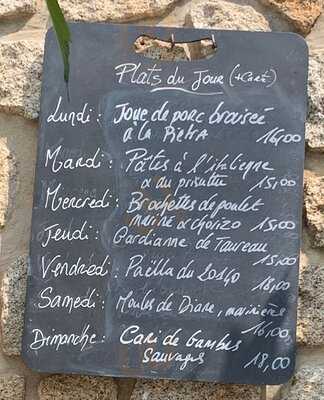 Plats du Jour (+Carte)
Lundi : Joue de porc braisée
à la Pietra 16,00
Mardi : Pâtes à l'italienne
& du prisuttu 15,00
Mercredi : Brochettes de poulet
mariné & chorizo 15,00
Jeudi : Gardianne de Taureau
15,00
Vendredi : Paëlla du 20140
18,00
Samedi : Moules de Diane, marinières
16,00
Dimanche : Cari de Gambas
Sauvages 18,00